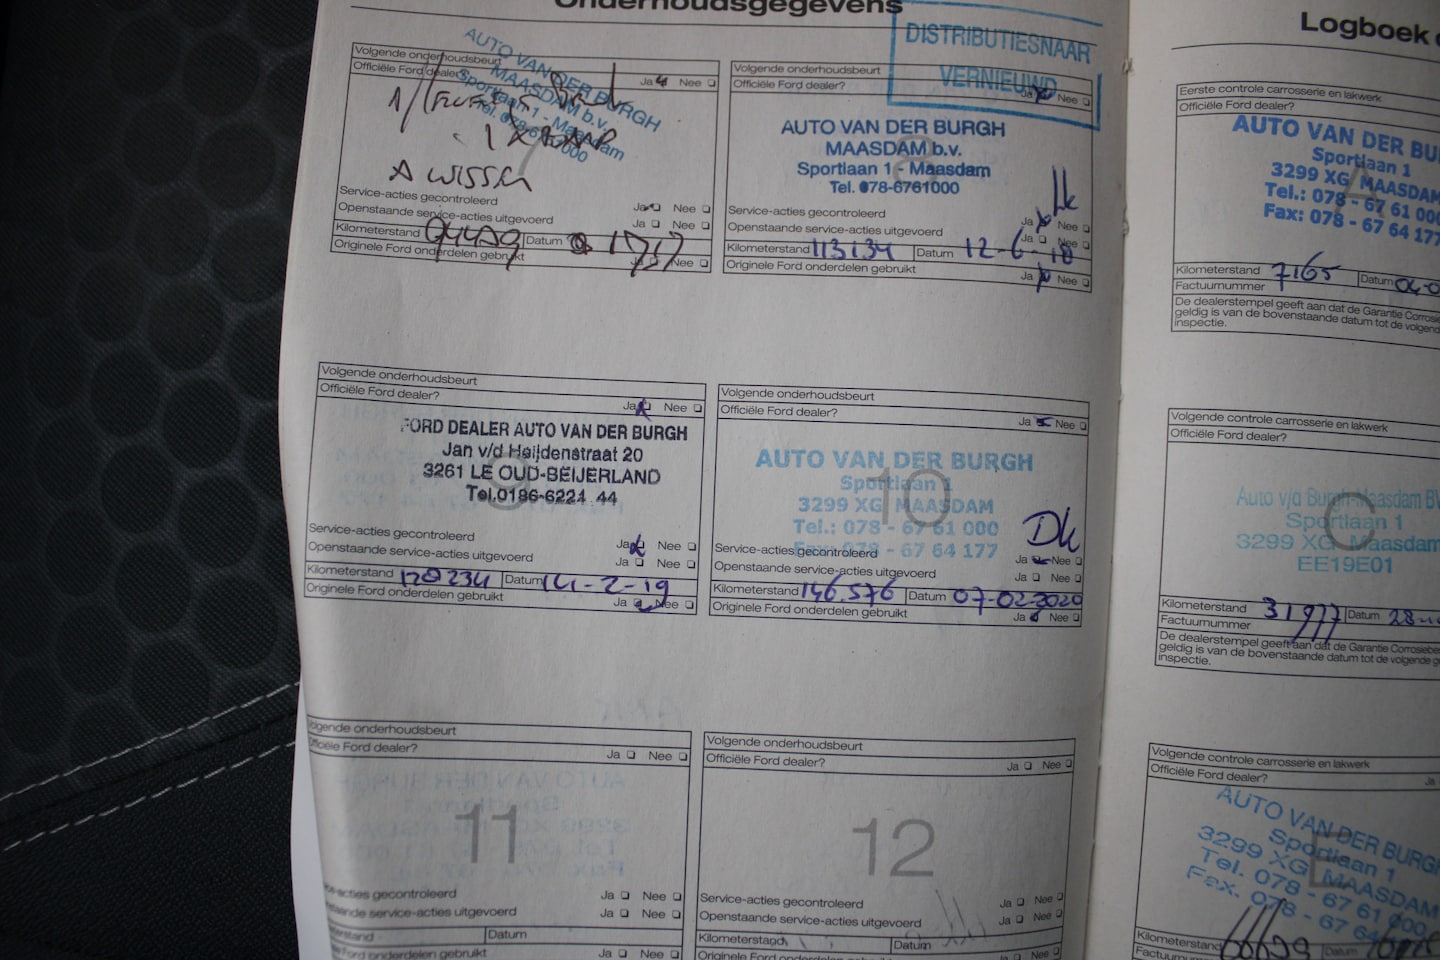 Onderhoudsgegevens
DISTRIBUTIESNAAR
VERNIEUWD
Volgende onderhoudsbeurt
Officiële Ford dealer? Ja Nee
AUTO VAN DER BURGH
MAASDAM b.v.
Sportlaan 1 - Maasdam
Tel. 078-6761000
7
A WISSEN
Service-acties gecontroleerd Ja Nee
Openstaande service-acties uitgevoerd Ja Nee
Kilometerstand Datum
Originele Ford onderdelen gebruikt Ja Nee
Volgende onderhoudsbeurt
Officiële Ford dealer? Ja Nee
AUTO VAN DER BURGH
MAASDAM b.v.
Sportlaan 1 - Maasdam
Tel. 078-6761000
8
Service-acties gecontroleerd Ja Nee
Openstaande service-acties uitgevoerd Ja Nee
Kilometerstand 113134 Datum 12-6-18
Originele Ford onderdelen gebruikt Ja Nee
Volgende onderhoudsbeurt
Officiële Ford dealer? Ja Nee
FORD DEALER AUTO VAN DER BURGH
Jan v/d Heijdenstraat 20
3261 LE OUD-BEIJERLAND
Tel.0186-6221 44
9
Service-acties gecontroleerd Ja Nee
Openstaande service-acties uitgevoerd Ja Nee
Kilometerstand 128234 Datum 14-2-19
Originele Ford onderdelen gebruikt Ja Nee
Volgende onderhoudsbeurt
Officiële Ford dealer? Ja Nee
AUTO VAN DER BURGH
Sportlaan 1
3299 XG MAASDAM
Tel.: 078 - 67 61 000
Fax: 078 - 67 64 177
10
Dk
Service-acties gecontroleerd Ja Nee
Openstaande service-acties uitgevoerd Ja Nee
Kilometerstand 146.576 Datum 07-02-2020
Originele Ford onderdelen gebruikt Ja Nee
Volgende onderhoudsbeurt
Officiële Ford dealer? Ja Nee
11
Service-acties gecontroleerd Ja Nee
service-acties uitgevoerd Ja Nee
Datum
Ford onderdelen gebruikt
Volgende onderhoudsbeurt
Officiële Ford dealer? Ja Nee
12
Service-acties gecontroleerd Ja Nee
Openstaande service-acties uitgevoerd Ja Nee
Kilometerstand Datum
Originele Ford onderdelen gebruikt Ja Nee
Logboek
Eerste controle carrosserie en lakwerk
Officiële Ford dealer?
AUTO VAN DER BU
Sportlaan 1
3299 XG MAASDAM
Tel.: 078 - 67 61 00
Fax: 078 - 67 64 177
A
Kilometerstand 7165 Datum 04-0
Factuurnummer
De dealerstempel geeft aan dat de Garantie
geldig is van de bovenstaande datum tot de volgend
inspectie.
Volgende controle carrosserie en lakwerk
Officiële Ford dealer?
Auto v/d Burgh Maasdam BV
Sportlaan 1
3299 XG Maasdam
EE19E01
C
Kilometerstand 31977 Datum 28
Factuurnummer
De dealerstempel geeft aan dat de Garantie
geldig is van de bovenstaande datum tot de volgende
inspectie.
Volgende controle carrosserie en lakwerk
Officiële Ford dealer? Ja
AUTO VAN DER BURGH
Sportlaan 1
3299 XG MAASDAM
Tel. 078 - 67 61 000
Fax. 078 - 67 64
E
Kilometerstand Datum
Factuurnummer